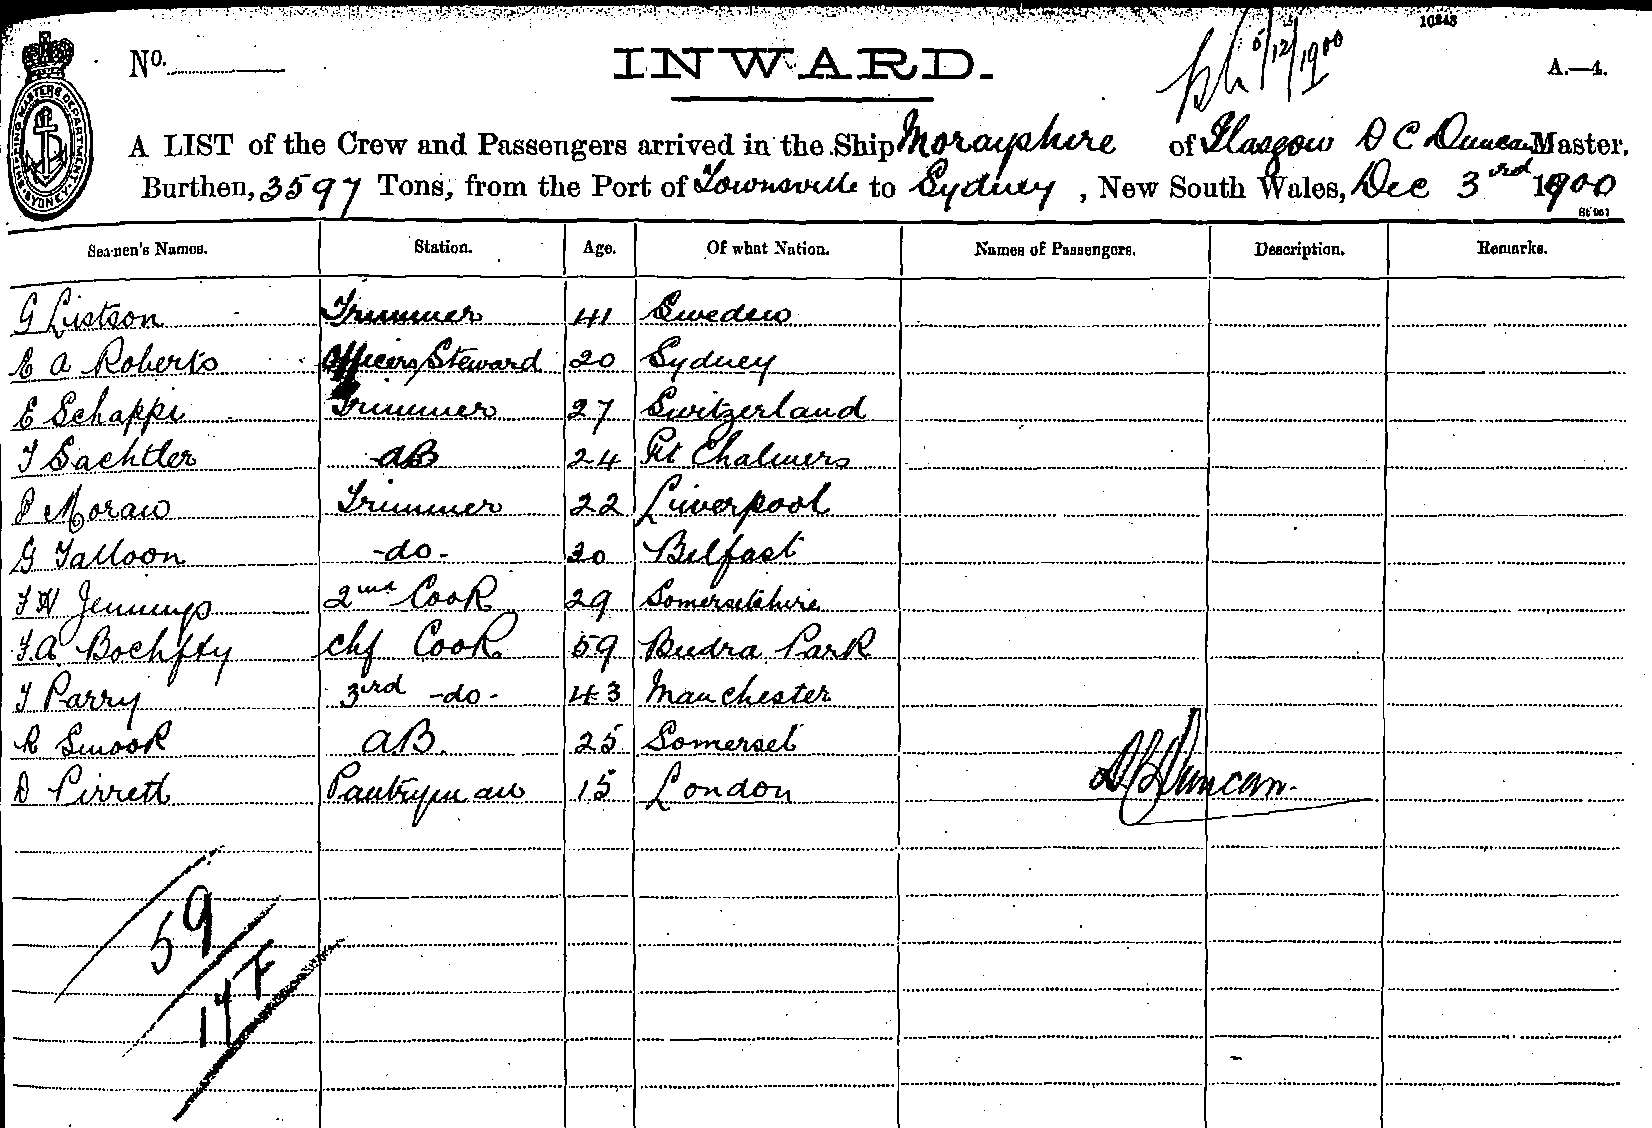 10248
No.
INWARD.
5/12/1900
A.—4.
A LIST of the Crew and Passengers arrived in the Ship Morayshire of Glasgow D C Duncan Master,
Burthen, 3597 Tons, from the Port of Townsville to Sydney, New South Wales, Dec 3rd 1900
Seamen's Names. Station. Age. Of what Nation. Names of Passengers. Description. Remarks.
G Listson Trimmer 41 Sweden
E A Roberts Officers Steward 20 Sydney
E Schappi Trimmer 27 Switzerland
F Sachtler AB 24 Pt Chalmers
P Moran Trimmer 22 Liverpool
G Falloon -do- 30 Belfast
F H Jennings 2nd Cook 29 Somersetshire
F.A. Bochfty chf Cook 59 Budra Park
F Parry 3rd -do- 43 Manchester
R Smook AB. 25 Somerset
D Pirrett Pantryman 15 London
D C Duncan.
59
14 F